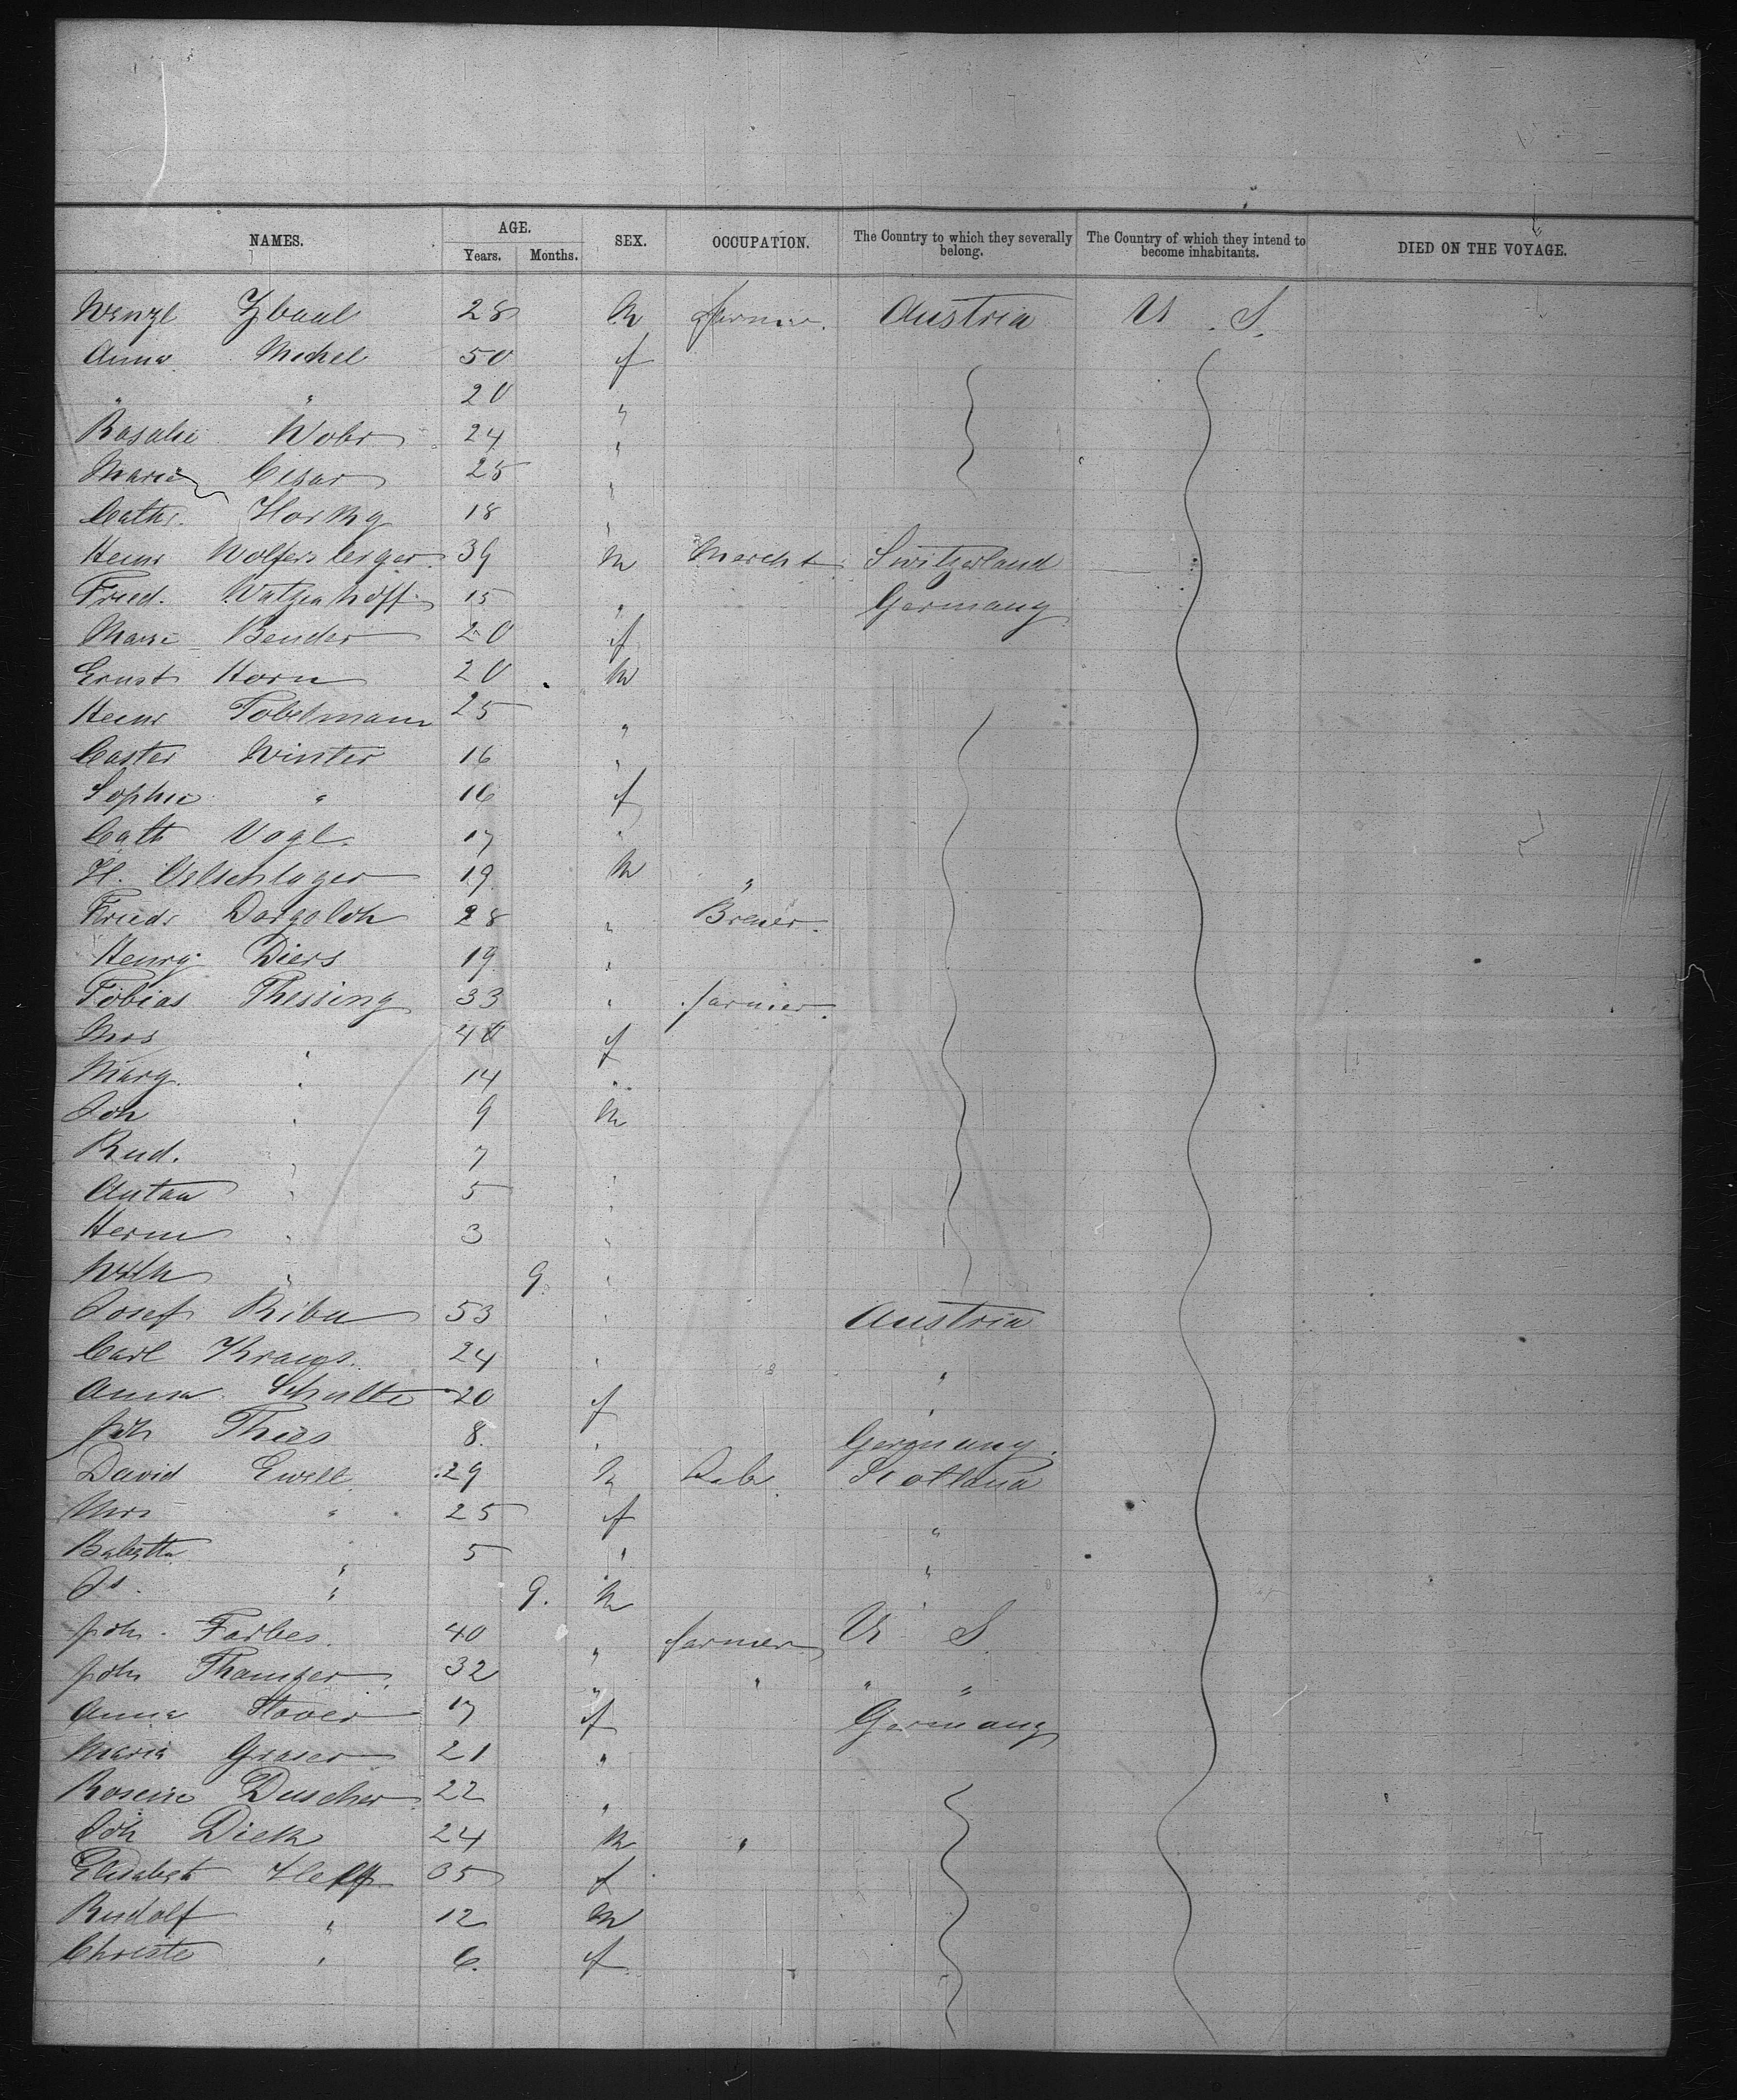 NAMES. AGE. SEX. OCCUPATION. The Country to which they severally belong. The Country of which they intend to become inhabitants. DIED ON THE VOYAGE.
Years. Months.
Wenzl 28 m farmer. Austria U. S.
Anna Michel 50 f
" " 20 "
Rosalie Wobr 24 "
Maria Cisar 25 "
Cathr. Horky 18 "
Heinr Wolfersberger 39 m Mercht Switzerland
Fried. Watzenhoff 15 " Germany
Marie Bender 20 f
Ernst Horn 20 m
Heinr Tobelmann 25 "
Winter 16 "
Sophie " 16 f
Cath Vogl. 17 "
H. Oelschlager 19 m "
Friedr 28 " Brewer.
Henry Diers 19 "
Tobias Thessing 33 " farmer.
Mrs " 40 f
Marg. " 14 "
Joh " 9 m
Rud. " 7 "
Anton " 5 "
Herm " 3 "
Wilh " 9. "
Josef Riba 53 " Austria
Carl Kraus. 24 " "
Anna Schulte 20 f "
Joh Thies 8. " Germany.
David Ewell 29 m Lab. Scotland
Mrs " 25 f "
Babette " 5 " "
Js. " 9. m
John Forbes. 40 " farmer U S.
John 32 " " " "
Anna Hover 17 f Germany
Maria Graser 21 "
Rosine Duscher 22 "
Joh Dick 24 m "
Elisabeth 35 f
Rudolf " 12 m
Christe " 6. f